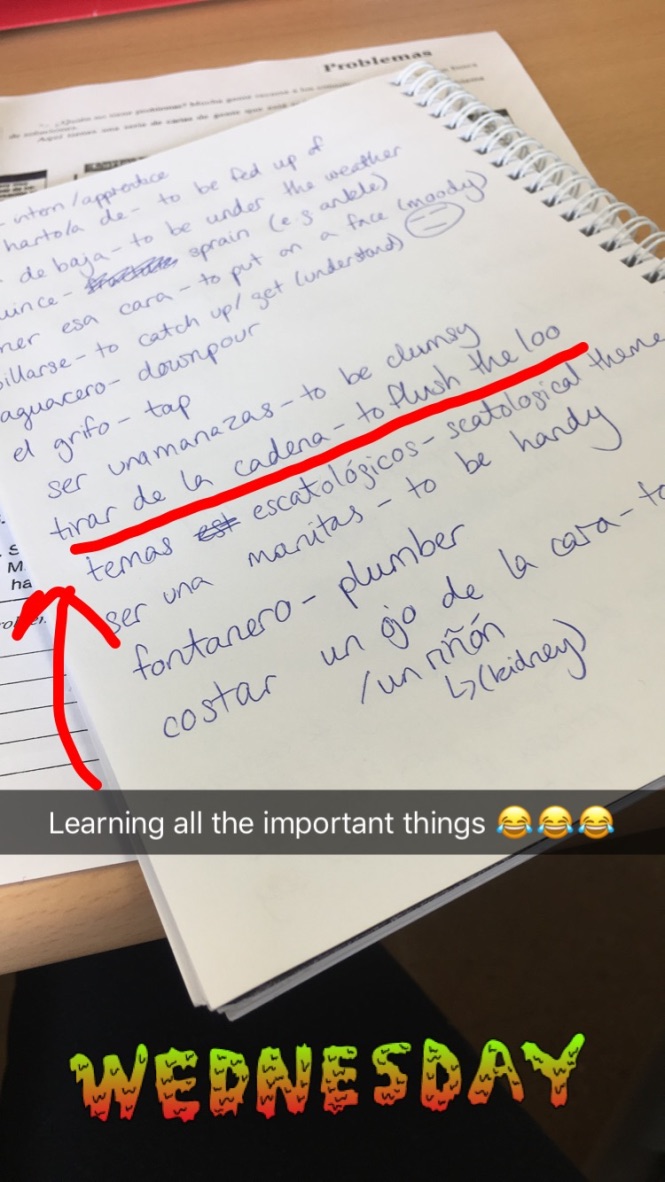 Problemas
¿Quién no tiene problemas? Mucha gente
de soluciones.
Aquí tienes una serie de cartas de gente que
intern/apprentice
harto/a de - to be fed up of
de baja - to be under the weather
uince - sprain (e.g ankle)
ner esa cara - to put on a face (moody)
pillarse - to catch up/get (understand)
aguacero - downpour
el grifo - tap
ser una manazas - to be clumsy
tirar de la cadena - to flush the loo
temas escatológicos - scatological theme
ser una manitas - to be handy
fontanero - plumber
costar un ojo de la cara - to
/un riñón
↳(kidney)
S
M
ha
Learning all the important things 😂😂😂
WEDNESDAY